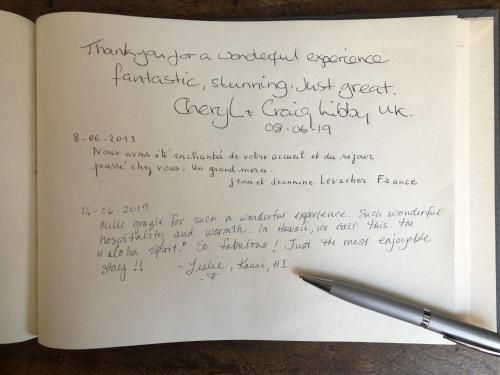 Thank you for a wonderful experience
fantastic, stunning. Just great.
Cheryl + Craig Libby UK.
08-06-19
8-06-2019
Nous avons été enchantés de votre accueil et du séjour
passé chez vous. Un grand merci.
Jean et Jeannine Levacher France
16-06-2019
Mille grazie for such a wonderful experience. Such wonderful
hospitality and warmth. In Hawaii, we call this the
"aloha spirit." So fabulous! Just the most enjoyable
stay!! ~ Leslie, Kauai, HI